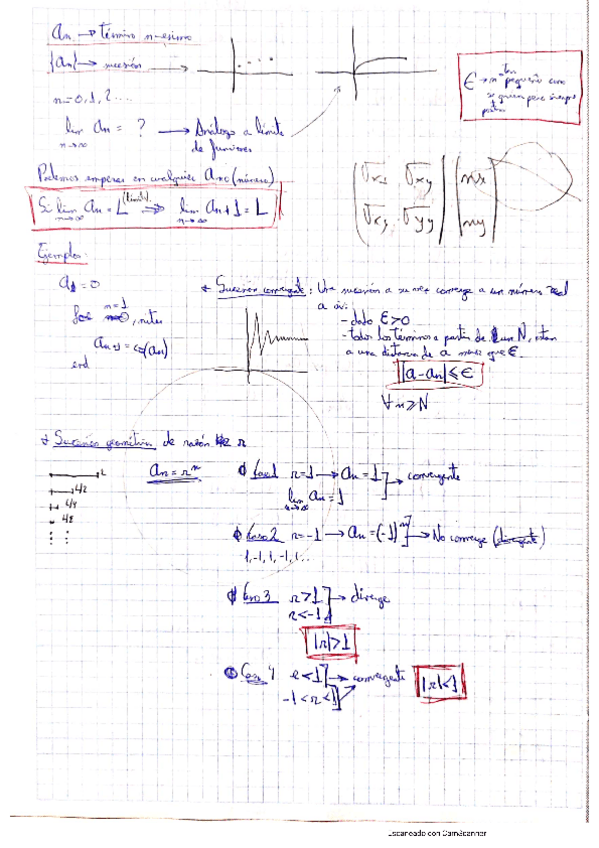 an → término n-esimo
{an} → sucesión →
n=0,1,2...
lim an = ? → Análogo a límite
n→∞ de funciones
E → n tan pequeño como
se quiera pero siempre
Podemos empezar en cualquier (número)
Si lim an = L (límite) ⇒ lim an+1 = L
n→∞ n→∞
σxx σxy nx
σxy σyy ny
Ejemplos:
a1 = 0
n=1
an+1 = cos(an)
end
* Sucesión convergente: Una sucesión converge a un número real
a si:
- dado E>0
- todos los términos a partir de un N, están
a una distancia de a menor que E.
|a-an| ≤ E
∀ n ≥ N
* Sucesión geométrica de razón r
an = r^n
L
L/2
L/4
L/8
Caso 1 r=1 → an = 1 → convergente
lim an = 1
n→∞
Caso 2 r=-1 → an = (-1)^n → No converge (divergente)
1,-1,1,-1,1...
Caso 3 r>1 → diverge
r<-1
|r|>1
Caso 4 r<1 → convergente |r|<1
-1<r<1
Escaneado con CamScanner